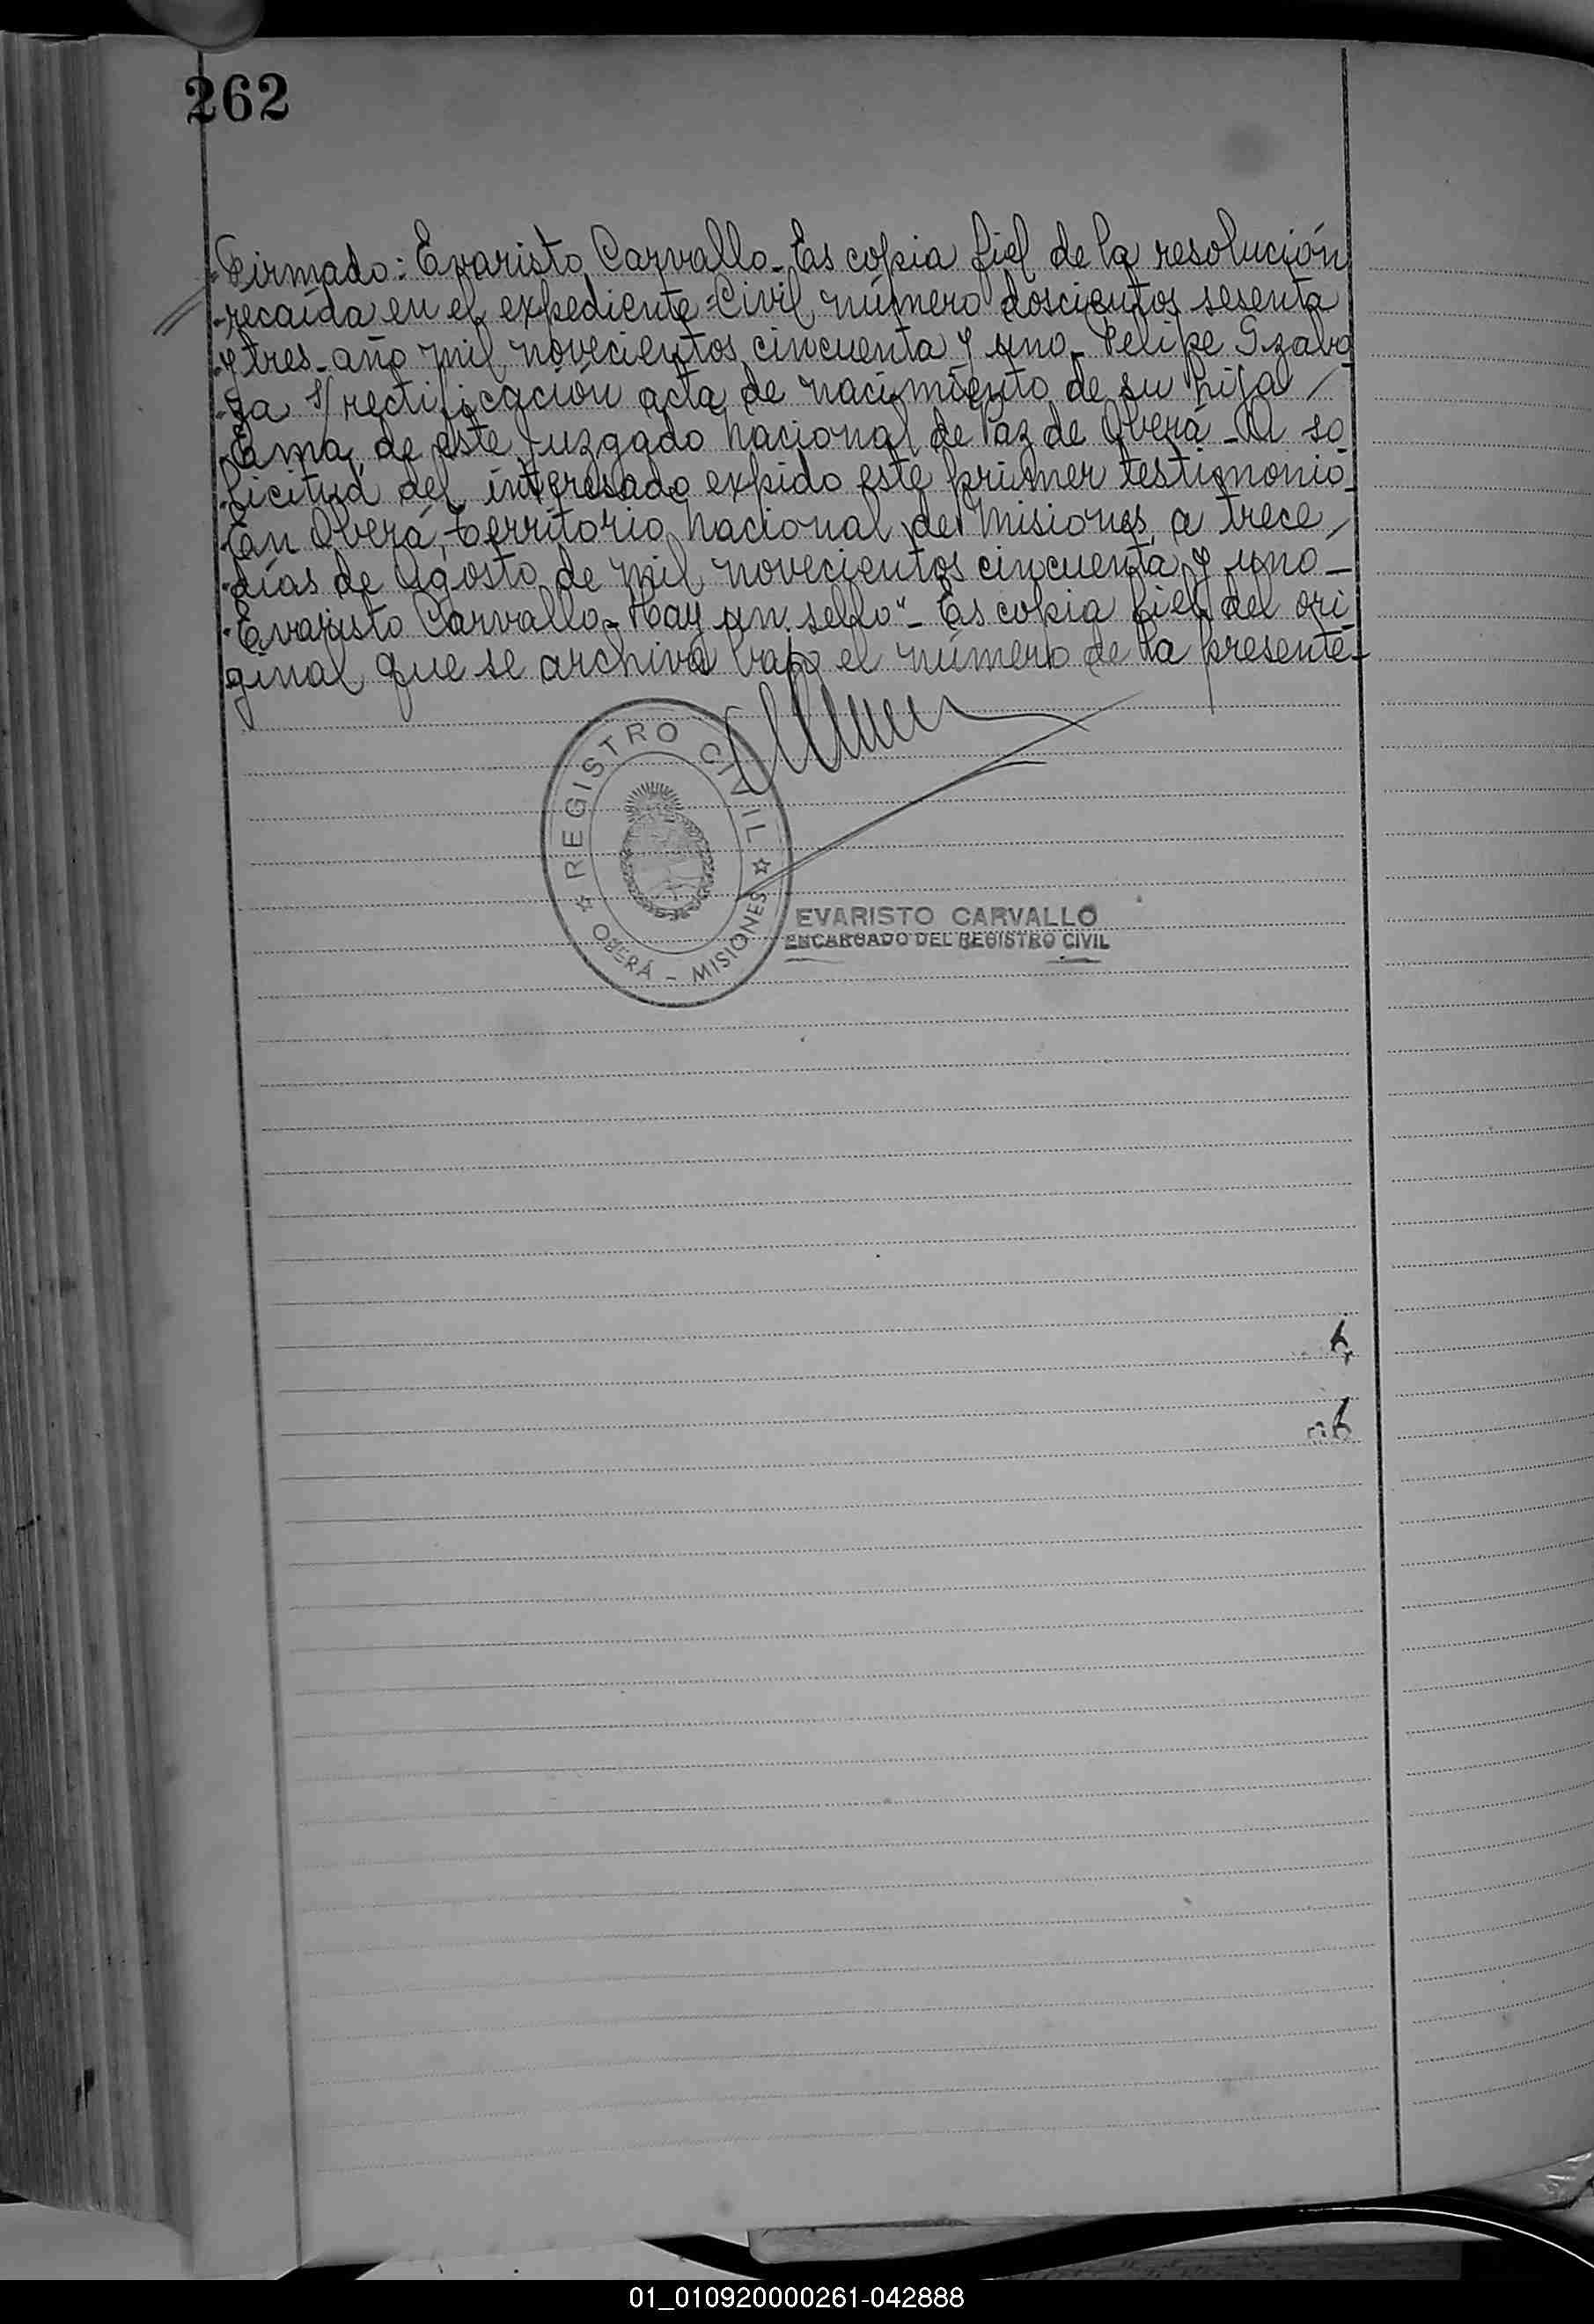 262
Firmado: Evaristo Carvallo_ Es copia fiel de la resolución
recaída en el expediente=Civil número doscientos sesenta
y tres_ año mil novecientos cincuenta y uno_ Felipe Szabo
ga s/ rectificación acta de nacimiento de su hija /
Ema, de este juzgado nacional de Paz de Oberá_ A so
licitud del interesado expido este primer testimonio_
En Oberá, territorio nacional de Misiones, a trece /
días de Agosto de mil novecientos cincuenta y uno_
Evaristo Carvallo_ Hay un sello"_ Es copia fiel del ori
ginal que se archiva bajo el número de la presente_
REGISTRO CIVIL
OBERÁ - MISIONES
EVARISTO CARVALLO
ENCARGADO DEL REGISTRO CIVIL
01_010920000261-042888